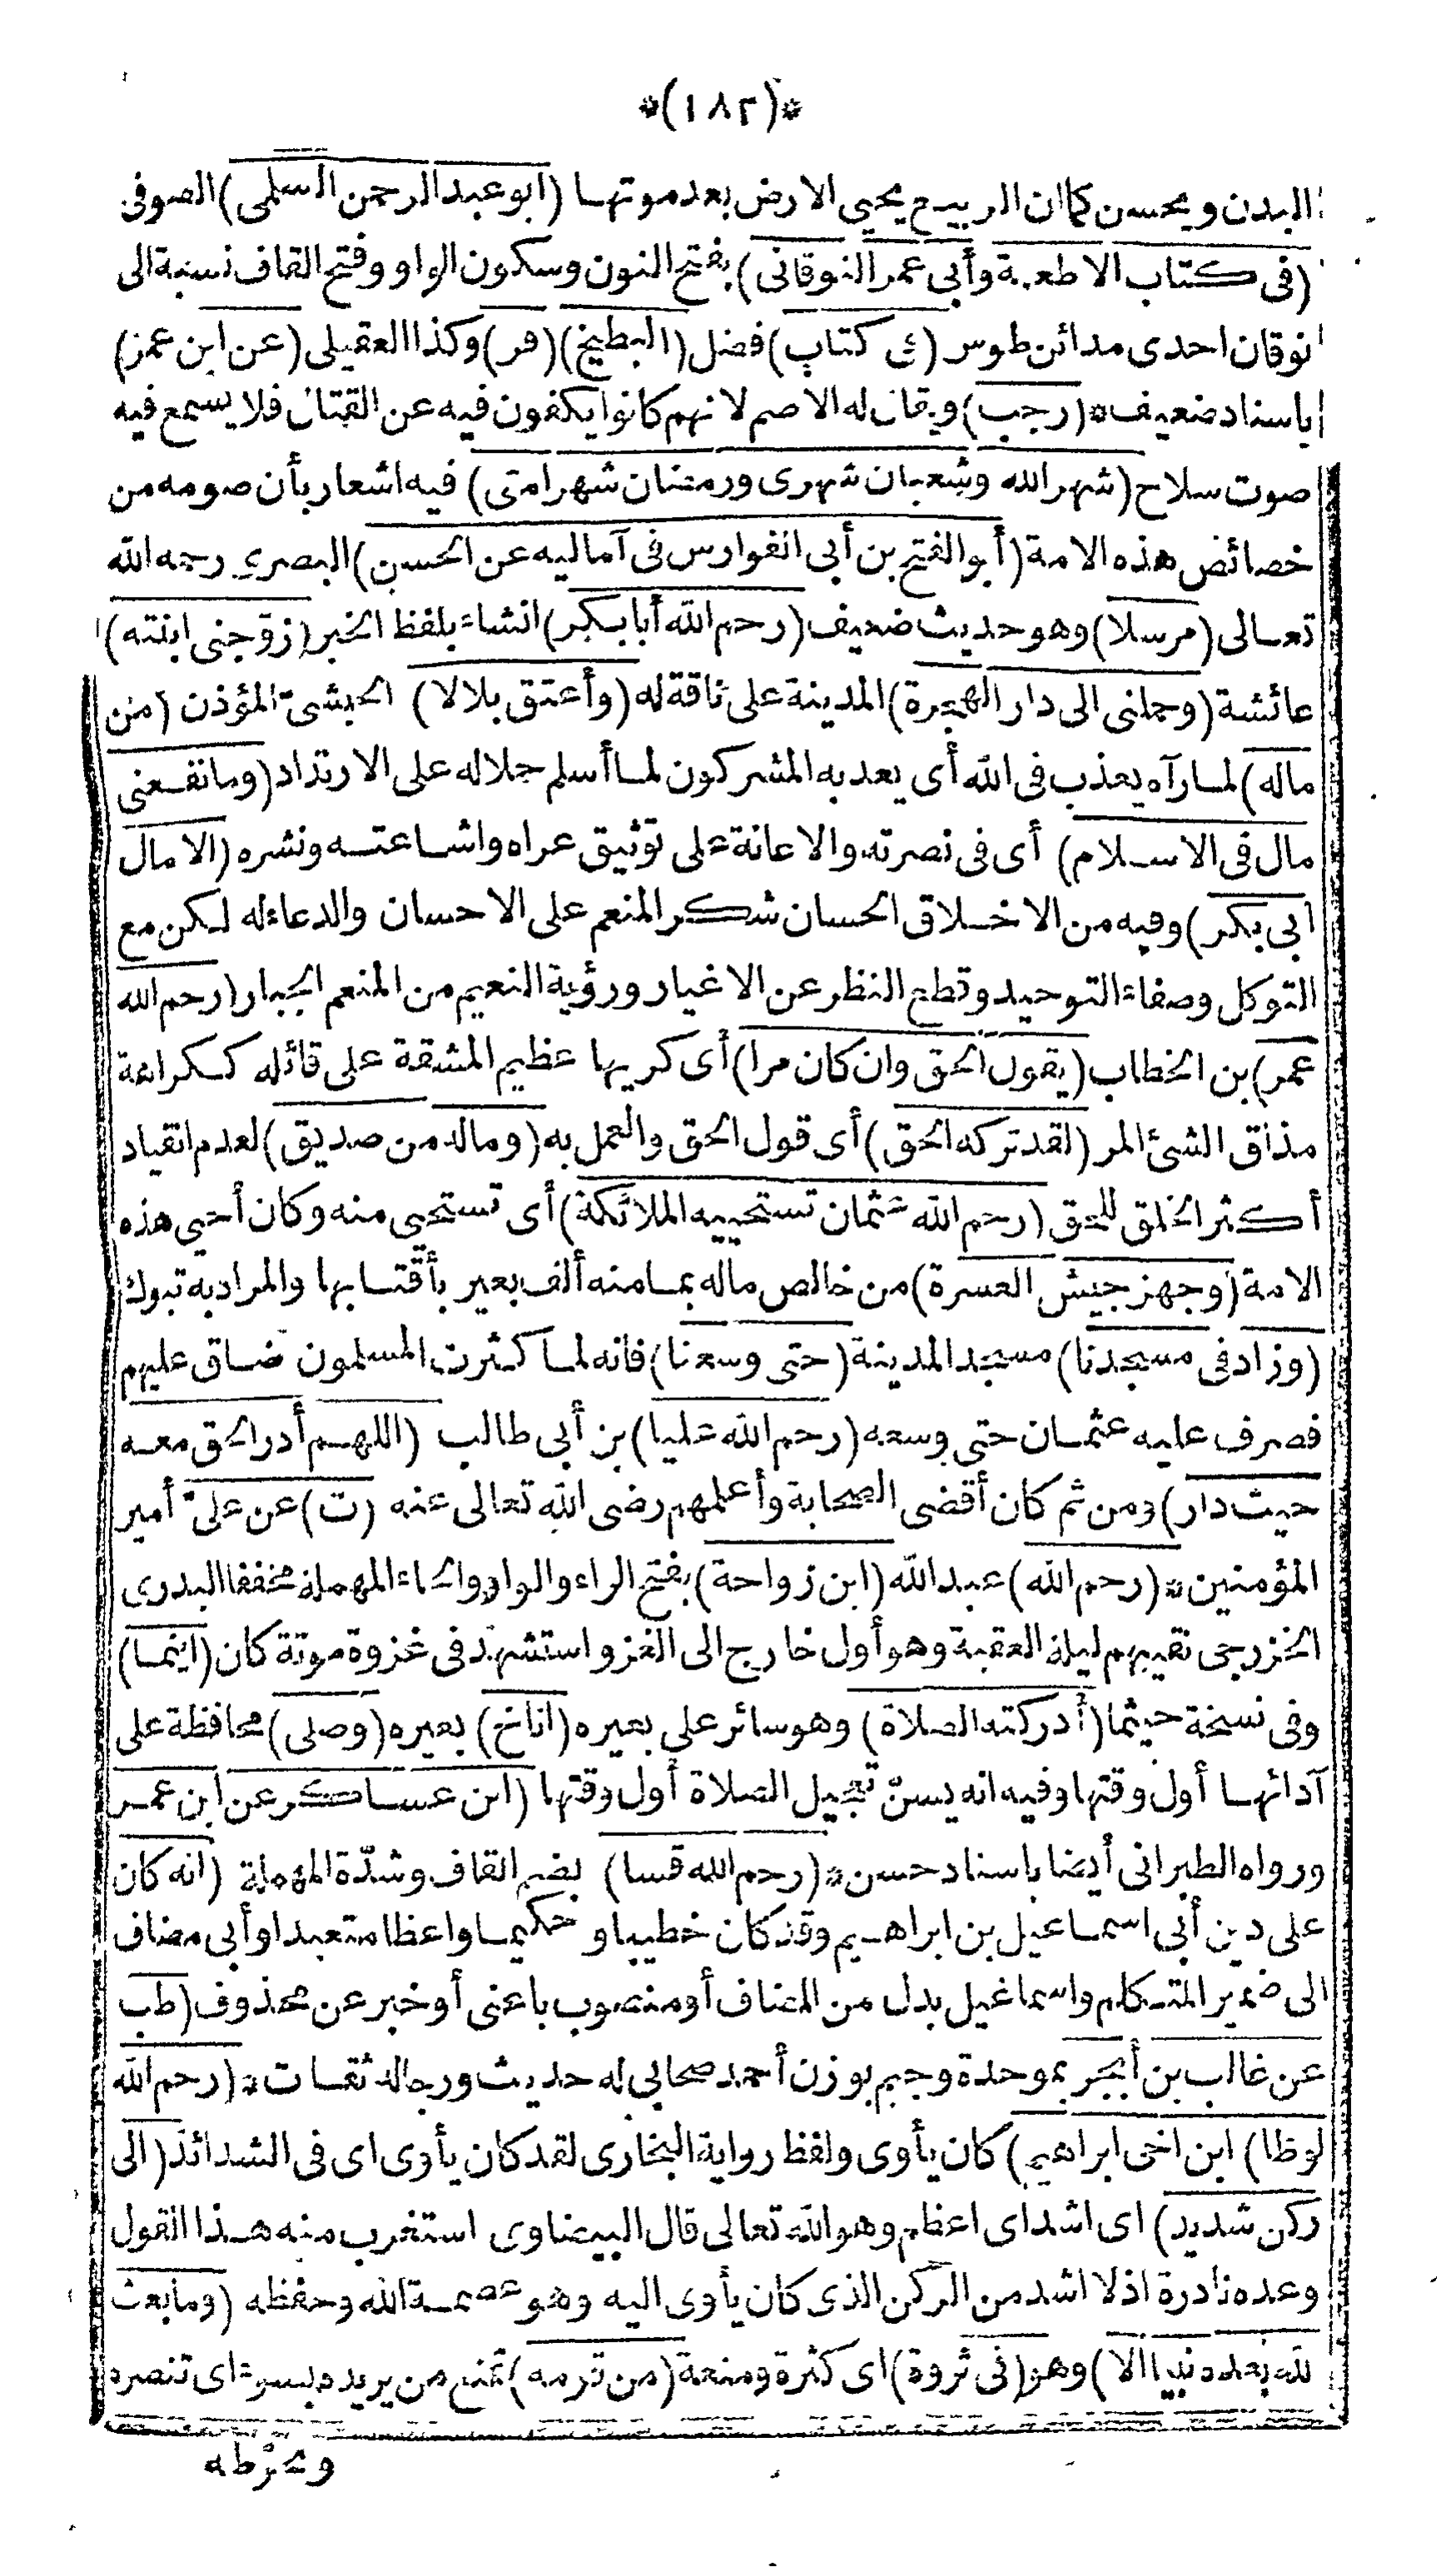 *(١٨٢)*
البدن ويحسن كما ان الربيع يحيي الارض بعد موتها (ابو عبد الرحمن السلمى) الصوفى
(فى كتاب الاطعمة وأبى عمر النوقانى) بفتح النون وسكون الواو وفتح القاف نسبة الى
نوقان احدى مدائن طوس (فى كتاب) فضل (البطيخ) (فر) وكذا العقيلى (عن ابن عمر)
باسناد ضعيف * (رجب) ويقال له الاصم لانهم كانوا يكفون فيه عن القتال فلا يسمع فيه
صوت سلاح (شهر الله وشعبان شهرى ورمضان شهر امتى) فيه اشعار بأن صومه من
خصائص هذه الامة (أبو الفتح بن أبى الفوارس فى آماليه عن الحسن) البصرى رحمه الله
تعالى (مرسلا) وهو حديث ضعيف (رحم الله أبا بكر) انشاء بلفظ الخبر (زوّجنى ابنته)
عائشة (وحملنى الى دار الهجرة) المدينة على ناقة له (وأعتق بلالا) الحبشىّ المؤذن (من
ماله) لما رآه يعذب فى الله أى يعذبه المشركون لما أسلم حملا له على الارتداد (وما نفعنى
مال فى الاسلام) أى فى نصرته والاعانة على توثيق عراه واشاعته ونشره (الا مال
أبى بكر) وفيه من الاخلاق الحسان شكر المنعم على الاحسان والدعاء له لكن مع
التوكل وصفاء التوحيد وقطع النظر عن الاغيار ورؤية النعيم من المنعم الجبار (رحم الله
عمر) بن الخطاب (يقول الحق وان كان مرا) أى كريها عظيم المشقة على قائله ككراهة
مذاق الشئ المر (لقد تركه الحق) أى قول الحق والعمل به (وماله من صديق) لعدم انقياد
أكثر الخلق للحق (رحم الله عثمان تستحييه الملائكة) أى تستحيى منه وكان أحيى هذه
الامة (وجهز جيش العسرة) من خالص ماله بما منه ألف بعير بأقتابها والمراد به تبوك
(وزاد فى مسجدنا) مسجد المدينة (حتى وسعنا) فانه لما كثرت المسلمون ضاق عليهم
فصرف عليه عثمان حتى وسعه (رحم الله عليا) بن أبى طالب (اللهم أدر الحق معه
حيث دار) ومن ثم كان أقضى الصحابة وأعلمهم رضى الله تعالى عنه (ت) عن علىّ أمير
المؤمنين * (رحم الله) عبد الله (ابن رواحة) بفتح الراء والواو والحاء المهملة مخففا البدرى
الخزرجى نقيبهم ليلة العقبة وهو أول خارج الى الغزو استشهد فى غزوة موتة كان (اينما)
وفى نسخة حيثما (أدركته الصلاة) وهو سائر على بعيره (اناخ) بعيره (وصلى) محافظة على
آدائها أول وقتها وفيه انه يسنّ تعجيل الصلاة أول وقتها (ابن عساكر عن ابن عمر
ورواه الطبرانى أيضا باسناد حسن * (رحم الله قسا) بضم القاف وشدّة المهملة (انه كان
على دين أبى اسماعيل بن ابراهيم وقد كان خطيبا وحكيما واعظا متعبدا وأبى مضاف
الى ضمير المتكلم واسماعيل بدل من المضاف أو منصوب باعنى أو خبر عن محذوف (طب
عن غالب بن أبجر بموحدة وجيم بوزن أحمد صحابى له حديث ورجاله ثقات * (رحم الله
لوطا) ابن اخى ابراهيم) كان يأوى ولفظ رواية البخارى لقد كان يأوى اى فى الشدائد (الى
ركن شديد) اى اشد اى اعظم وهو الله تعالى قال البيضاوى استغرب منه هذا القول
وعده نادرة اذ لا اشد من الركن الذى كان يأوى اليه وهو عصمة الله وحفظه (وما بعث
الله بعده نبيا الا) وهو (فى ثروة) اى كثرة ومنعة (من قومه) تمنع من يريده بسوء اى تنصره
وتحوطه